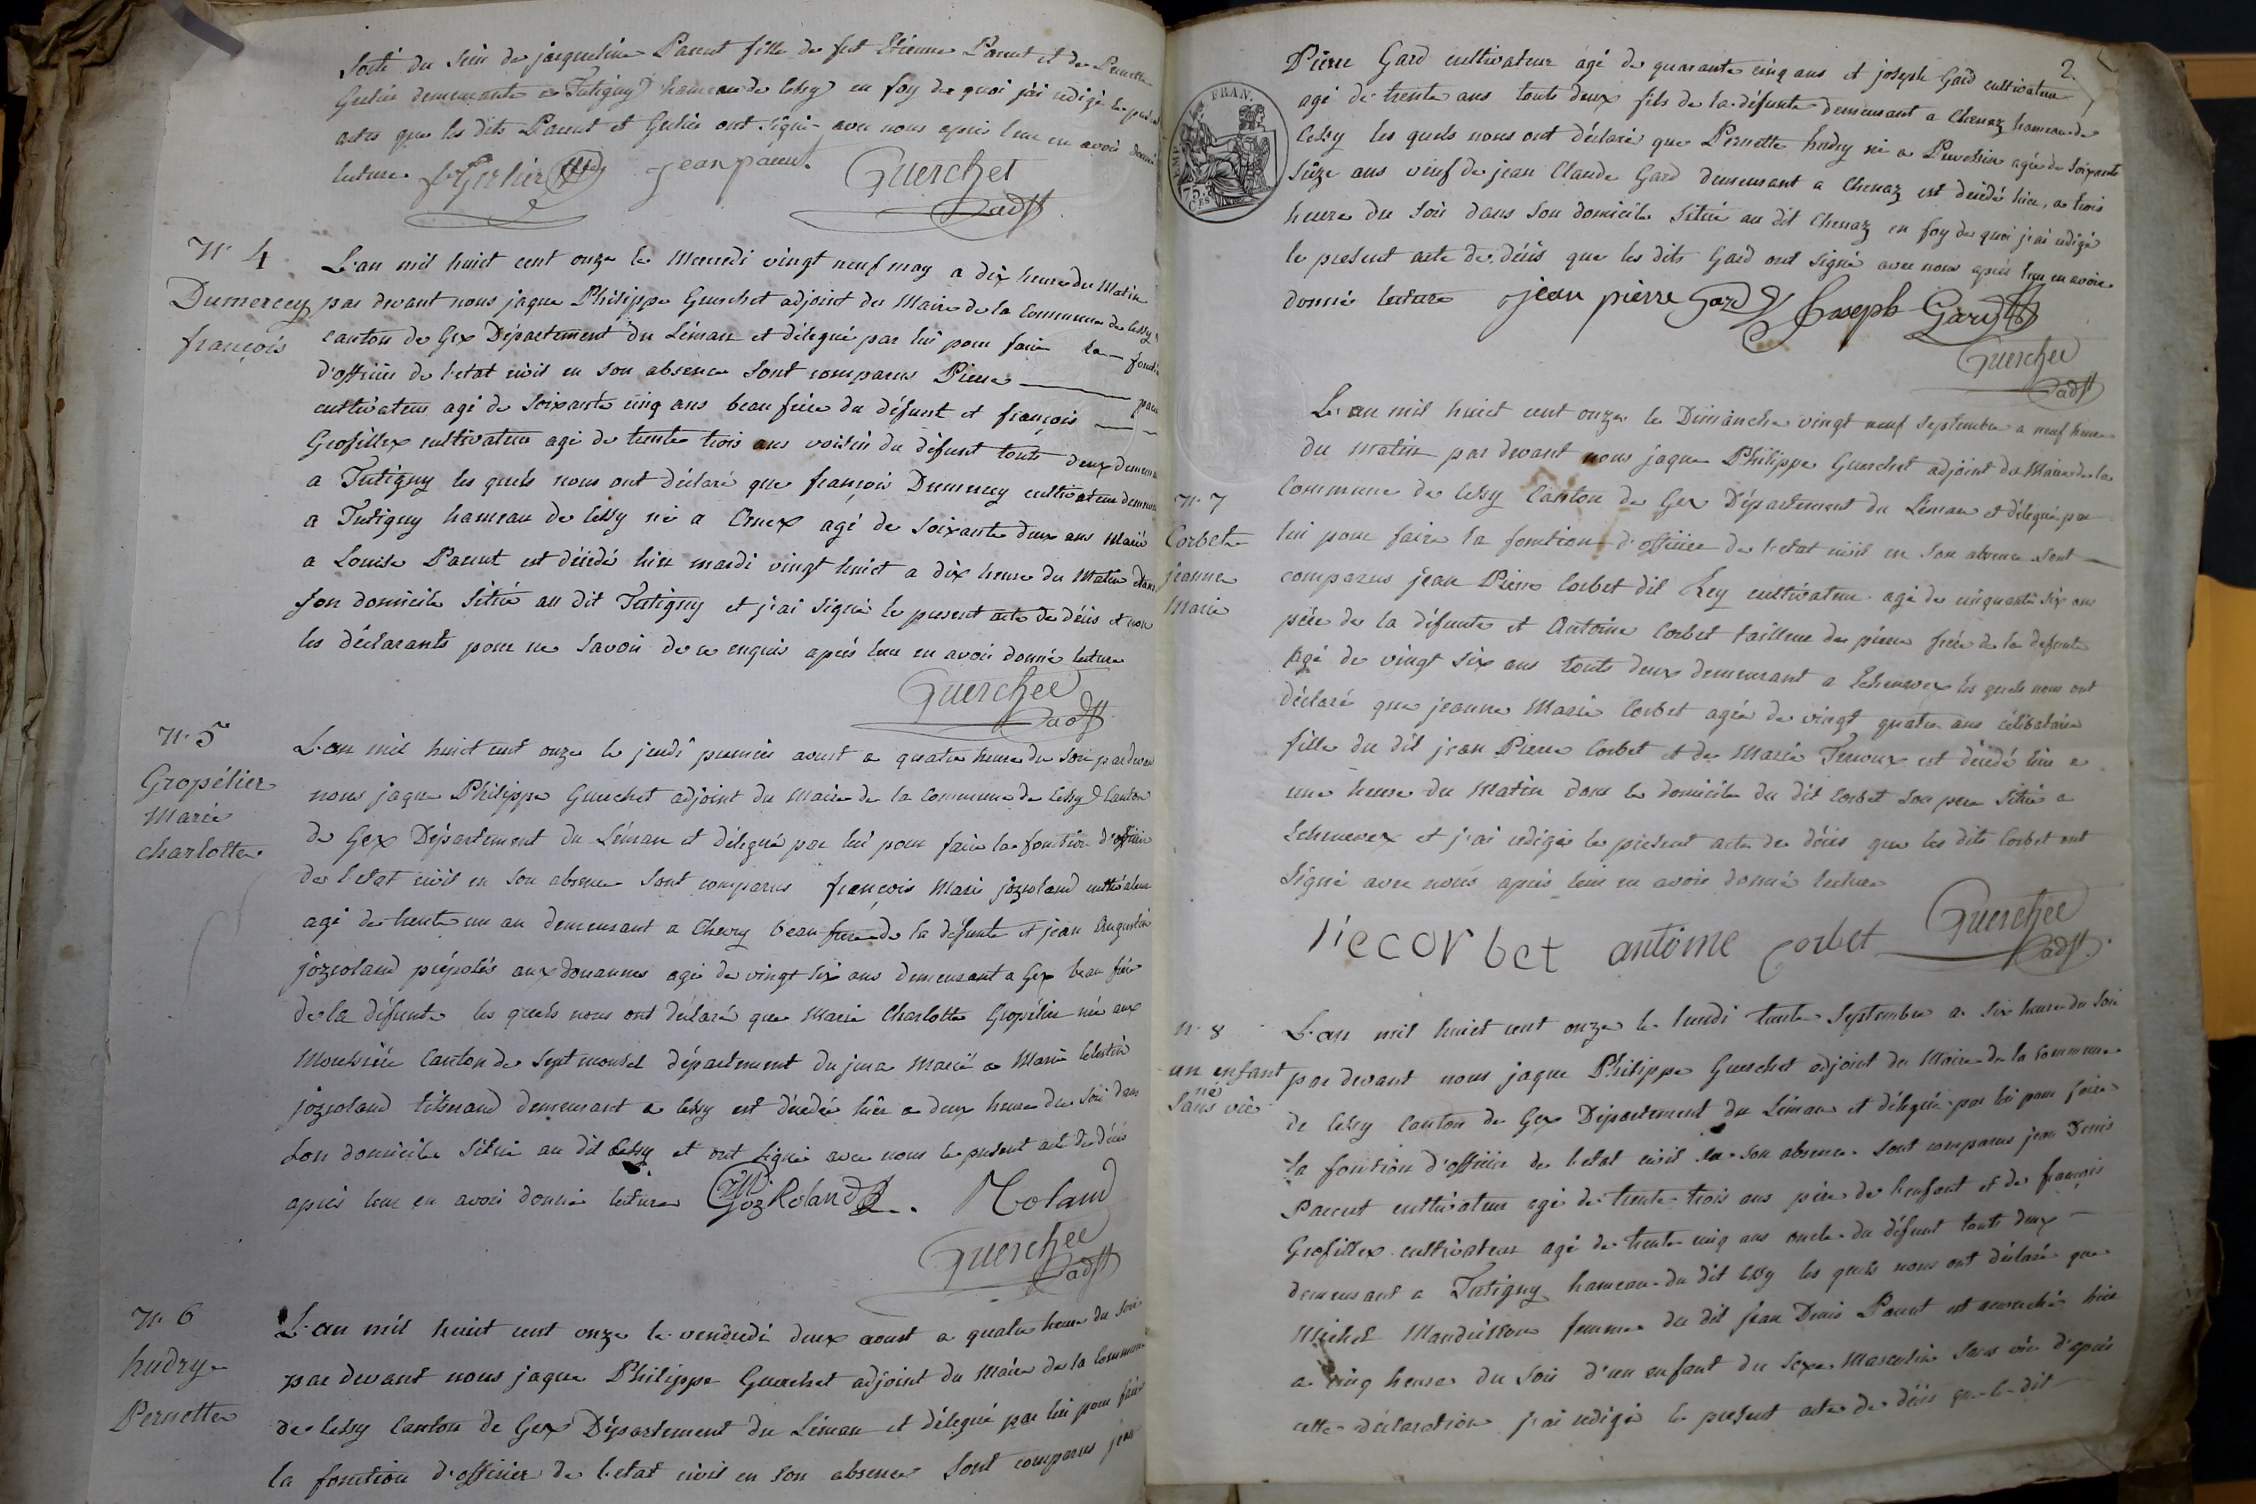 sorti du sein de jacqueline Parent fille de fut Etienne Parent et de Pernette
Gerlier demeurante a Tutigny hameau de Cessy en foy de quoi j'ai redigé le présent
actes que les dits Parent et Gerlier ont signé avec nous après leur en avoir donné
lecture Gerlier jean parent Guerchet
adjt
N. 4
Dumercey
françois
L'an mil huict cent onze le Mercredi vingt neuf may a dix heure du Matin
par devant nous jaque Philippe Guerchet adjoint du Maire de la Commune de Cessy
canton de Gex Département du Léman et délegué par lui pour faire la
d'officier de l'etat civil en son absence sont comparus Pierre
cultivateur agé de soixante cinq ans beau frère du défunt et françois
Grosfillex cultivateur agé de trente trois ans voisin du défunt touts deux
a Tutigny les quels nous ont déclaré que françois Dumercey cultivateur
a Tutigny hameau de Cessy né a Ornex agé de soixante deux ans Marié
a Louise Parent est décédé hier mardi vingt huict a dix heure du Matin dans
son domicile situé au dit Tutigny et j'ai signé le present acte de décès et non
les déclarants pour ne savoir de ce enquis après leur en avoir donné lecture
Guerchet
adjt
N. 5
Gropélier
Marie
charlotte
L'an mil huict cent onze le jeudi premier aoust a quatre heure du soir par devant
nous jaque Philippe Guerchet adjoint du Maire de la Commune de Cessy Canton
de Gex Département du Léman et délegué par lui pour faire la fonction d'officier
de l'etat civil en son absence sont comparus françois Marie jozroland cultivateur
agé de trente un an demeurant a Chevry beau frere de la defunte et jean Augustin
jozroland préposés aux douannes agé de vingt six ans demeurant a Gex beau frère
de la défunte les quels nous ont déclaré que Marie Charlotte Gropélier née aux
Canton de Septmoncel département du jura Marié a Marie Celestin
jozroland tisserand demeurant a Cessy est décedée hier a deux heure du soir dans
son domicile situé au dit Cessy et ont signé avec nous le present acte de décès
après leur en avoir donné lecture JozRoland Roland
Guerchet
adjt
N. 6
hudry
Pernette
L'an mil huict cent onze le vendredi deux aoust a quatre heure du soir
par devant nous jaque Philippe Guerchet adjoint du Maire de la Commune
de Cessy Canton de Gex Département du Léman et délegué par lui pour faire
la fonction d'officier de l'etat civil en son absence sont comparus jean
2
EMP. FRAN.
75 CES
Pierre Gard cultivateur agé de quarante cinq ans et joseph Gard cultivateur
agé de trente ans touts deux fils de la défunte demeurant a Chenaz hameau de
Cessy les quels nous ont déclaré que Pernette hudry né a agée de soixante
seize ans veuf de jean Claude Gard demeurant a Chenaz est décédé hier, a trois
heure du soir dans son domicile situé au dit Chenaz en foy de quoi j'ai redigé
le present acte de décès que les dits Gard ont signé avec nous après leur en avoir
donné lecture jean pierre Gard Joseph Gard
Guerchet
adjt
N. 7
Corbet
jeanne
Marie
L'an mil huict cent onze le Dimanche vingt neuf Septembre a neuf heure
du matin par devant nous jaque Philippe Guerchet adjoint du Maire de la
Commune de Cessy Canton de Gex Département du Léman et délegué par
lui pour faire la fonction d'officier de l'etat civil en son absence sont
comparus jean Pierre Corbet dit Rey cultivateur agé de cinquante six ans
père de la défunte et Antoine Corbet tailleur de pierre frère de la defunte
agé de vingt six ans touts deux demeurant a les quels nous ont
déclaré que jeanne Marie Corbet agée de vingt quatre ans célibataire
fille du dit jean Pierre Corbet et de Marie est décédé hier a
une heure du Matin dans le domicile du dit Corbet son père situé a
et j'ai redigé le présent acte de décès que les dits Corbet ont
signé avec nous après leur en avoir donné lecture
corbet antoine corbet Guerchet
adjt.
N. 8
un enfant
né
sans vie
L'an mil huict cent onze le lundi trente Septembre a six heure du soir
par devant nous jaque Philippe Guerchet adjoint du Maire de la Commune
de Cessy Canton de Gex Département du Léman et délegué par lui pour faire
la fonction d'officier de l'etat civil en son absence sont comparus jean Denis
Parent cultivateur agé de trente trois ans père de l'enfant et de françois
Grosfillex cultivateur agé de trente cinq ans oncle du défunt touts deux
demeurant a Tutigny hameau du dit Cessy les quels nous ont déclaré que
Michel femme du dit jean Denis Parent est accouchée hier
a cinq heures du soir d'un enfant du sexe Masculin sans vie d'après
cette déclaration j'ai redigé le present acte de décès que le dit